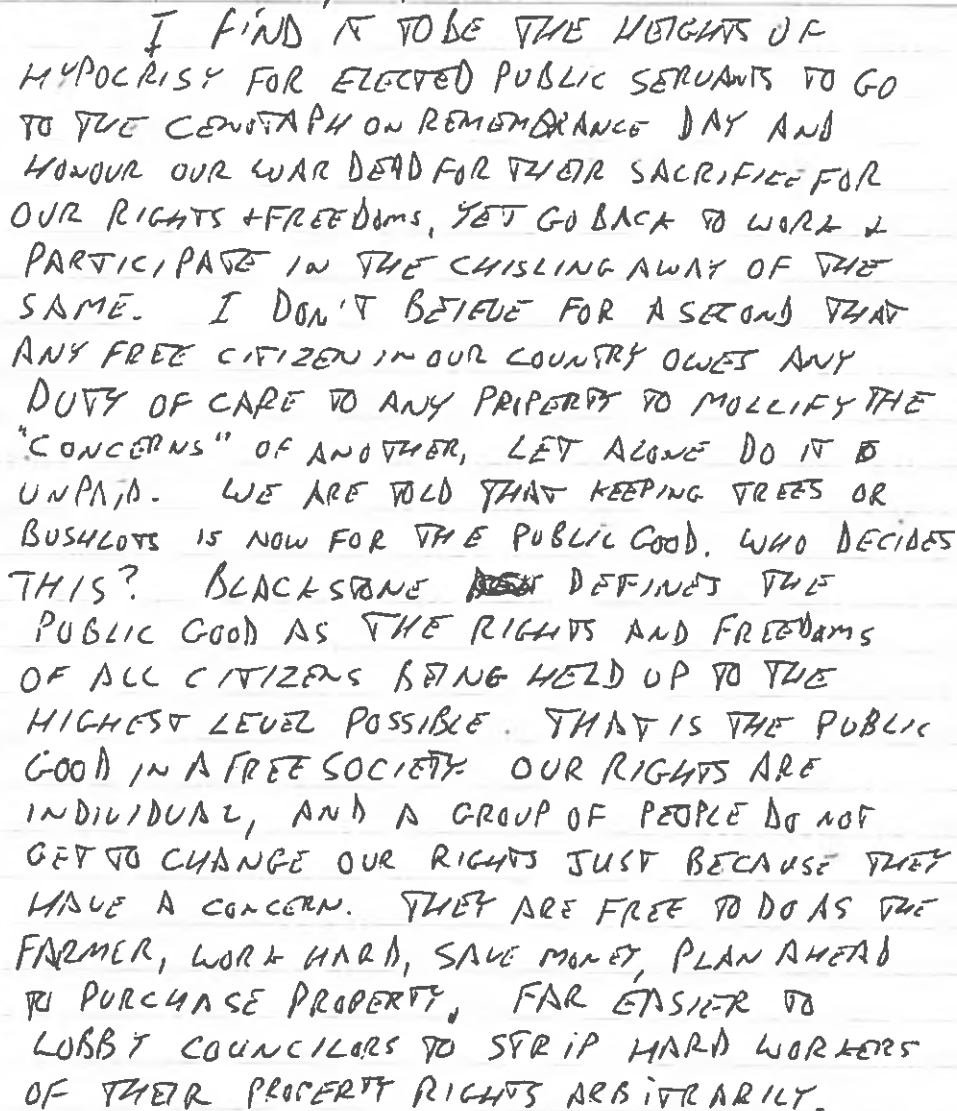 I FIND IT TO BE THE HEIGHTS OF
HYPOCRISY FOR ELECTED PUBLIC SERVANTS TO GO
TO THE CENOTAPH ON REMEMBRANCE DAY AND
HONOUR OUR WAR DEAD FOR THEIR SACRIFICE FOR
OUR RIGHTS + FREEDOMS, YET GO BACK TO WORK &
PARTICIPATE IN THE CHISLING AWAY OF THE
SAME. I DON'T BEIEVE FOR A SECOND THAT
ANY FREE CITIZEN IN OUR COUNTRY OWES ANY
DUTY OF CARE TO ANY PRIPERTY TO MOLLIFY THE
"CONCERNS" OF ANOTHER, LET ALONE DO IT
UNPAID. WE ARE TOLD THAT KEEPING TREES OR
BUSHLOTS IS NOW FOR THE PUBLIC GOOD. WHO DECIDES
THIS? BLACKSTONE DEFINES THE
PUBLIC GOOD AS THE RIGHTS AND FREEDOMS
OF ALL CITIZENS BEING HELD UP TO THE
HIGHEST LEVEL POSSIBLE. THAT IS THE PUBLIC
GOOD IN A FREE SOCIETY. OUR RIGHTS ARE
INDIVIDUAL, AND A GROUP OF PEOPLE DO NOT
GET TO CHANGE OUR RIGHTS JUST BECAUSE THEY
HAVE A CONCERN. THEY ARE FREE TO DO AS THE
FARMER, WORK HARD, SAVE MONEY, PLAN AHEAD
TO PURCHASE PROPERTY. FAR EASIER TO
LOBBY COUNCILORS TO STRIP HARD WORKERS
OF THEIR PROPERTY RIGHTS ARBITRARILY.